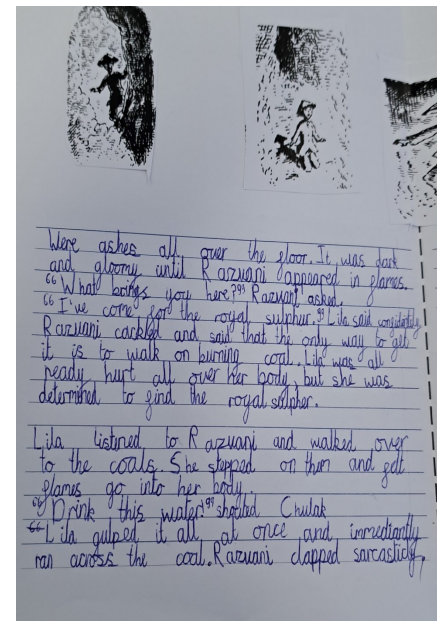 Were ashes all over the floor. It was dark
and gloomy until Razvani appeared in flames.
“What brings you here?” Razvani asked.
“I've come for the royal sulphur.” Lila said confidently
Razvani cackled and said that the only way to get
it is to walk on burning coal. Lila was all
ready hurt all over her body, but she was
determined to find the royal sulpher.
Lila listened to Razvani and walked over
to the coals. She stepped on them and felt
flames go into her body
“Drink this water” shouted Chulak
“Lila gulped it all at once and immediantly
ran across the coal. Razvani clapped sarcasticly,